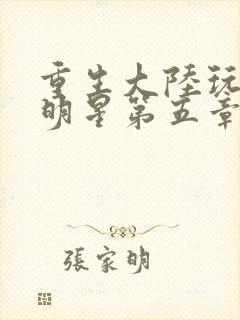 重生大陸玩
明星第五章
張家明